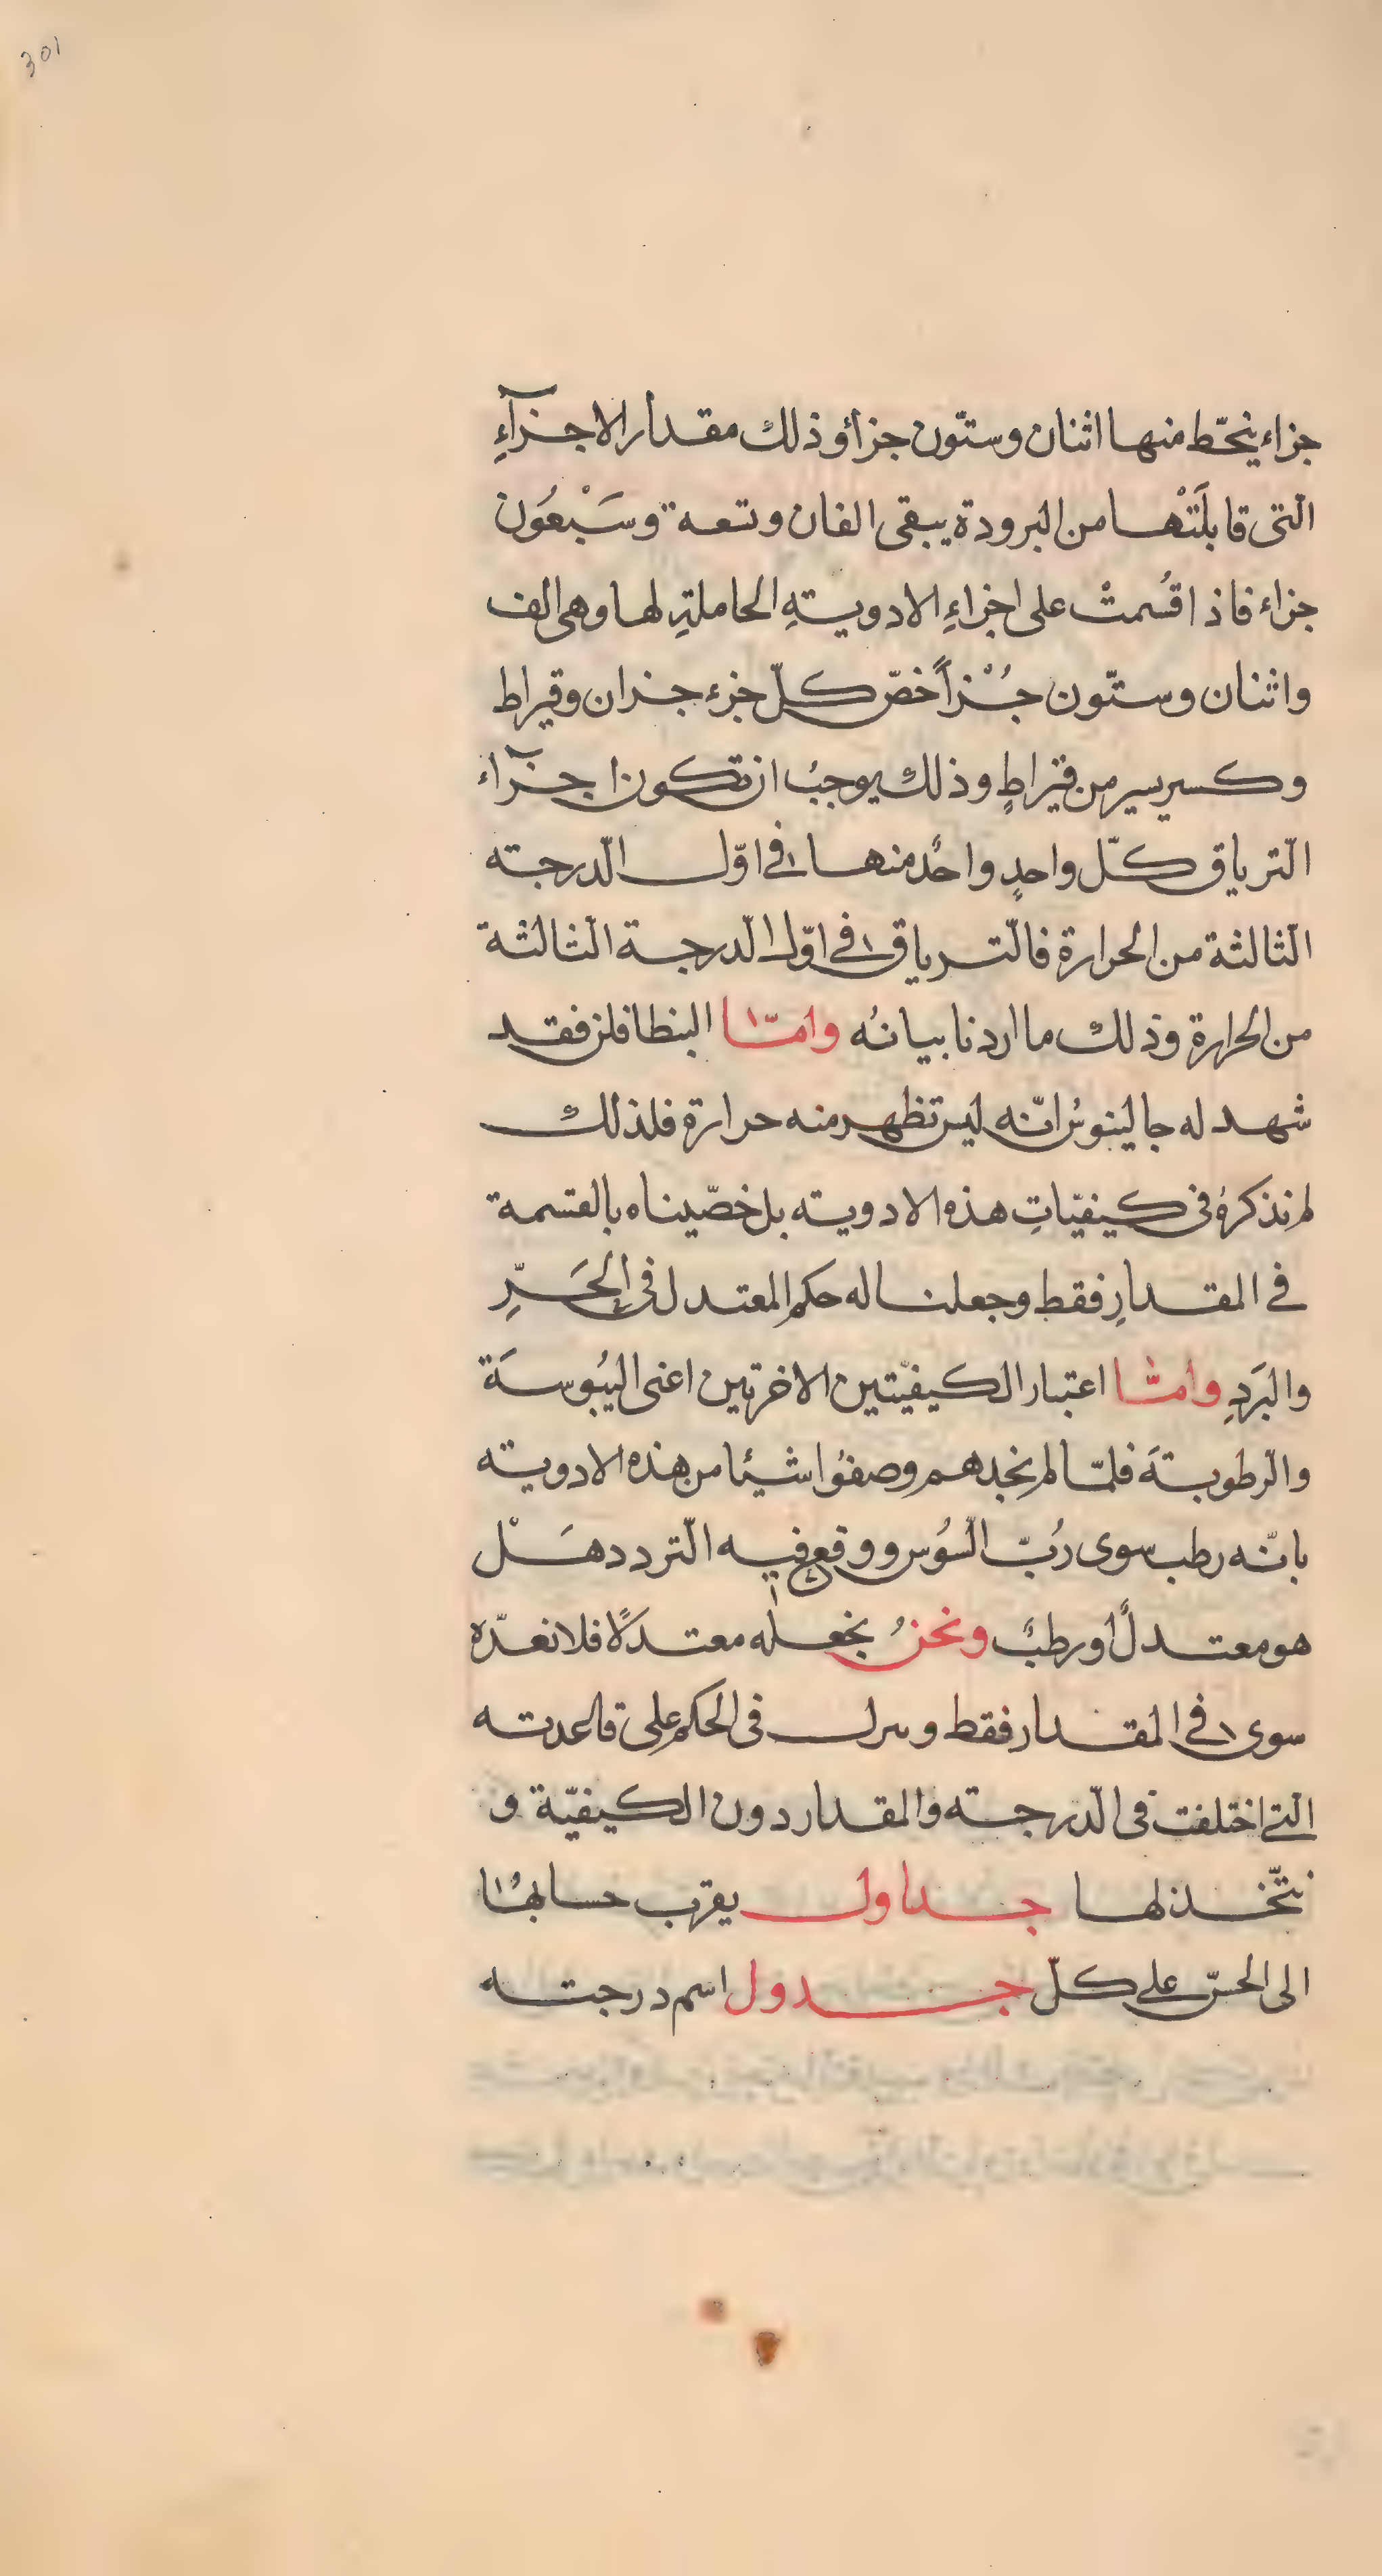 301
جزاء ينحّط منها اثنان وستّون جزأ وذلك مقدار الاجزآءِ
الّتى قابلَتْها من البرودة يبقى الفان وتعة وسَبْعُون
جزاء فاذا قُسمتْ على اجزاءِ الادويتهِ الحاملتهِ لها وهى الف
واثنان وستّون جُزْاً خصّ كلّ جزء جزان وقيراط
وكسر يسير من قيراطٍ وذلك يوجبُ ان تكون اجزآء
الّترياق كلّ واحدٍ واحدٌ منها فى اوّل الّدرجته
الّثالثة من الحرارة فالّترياق فى اوّل الّدرجة الّثالثة
من الحرارة وذلك ما اردنا بيانُه وامّا البنطافلن فقد
شهد له جالينوسُ انّه ليس تظهر منه حرارة فلذلك
لم نذكرهُ فى كيفيّاتِ هذه الادويته بل خصّيناه بالقسمة
فى المقدارِ فقط وجعلنا له حكم المعتدل فى الحَرِّ
والبَردِ وامّا اعتبار الكيفيّتين الاخرتين اعنى اليُبوسَة
والّرطوبتهَ فلمّا لم نجدهم وصفوُا شيئا من هذه الادويته
بانّه رطب سوى رُبّ الّسُوس ووقع فيه الّتردد هَلْ
هو معتدلٌ او رطبٌ ونحنُ نجعله معتدلًا فلا نعدّه
سوى فى المقدار فقط و فى الحكم على قاعدته
الّتى اختلفت فى الّدرجته والمقدار دون الكيفيّة و
نتّخذ لها جداول يقرّب حسابهُا
الى الحسّ على كلّ جدول اسم درجته